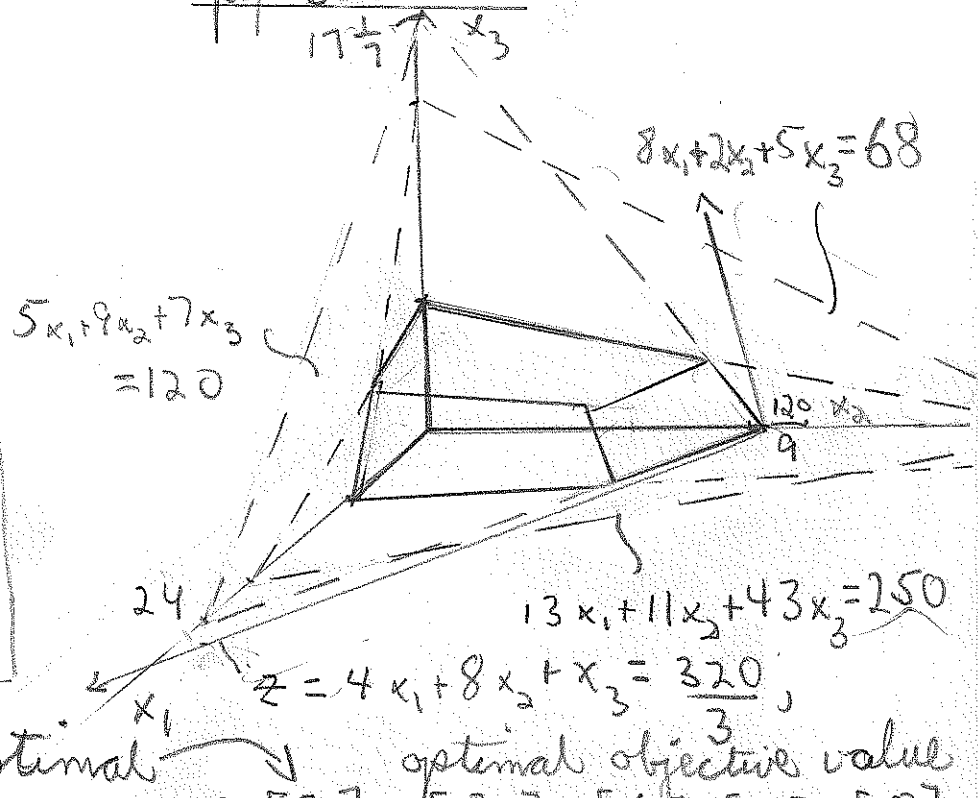 17 1/7
x₃
8x₁+2x₂+5x₃=68
5x₁+9x₂+7x₃
=120
120/9
x₂
24
13x₁+11x₂+43x₃=250
z = 4x₁+8x₂+x₃ = 320/3,
x₁
optimal objective value